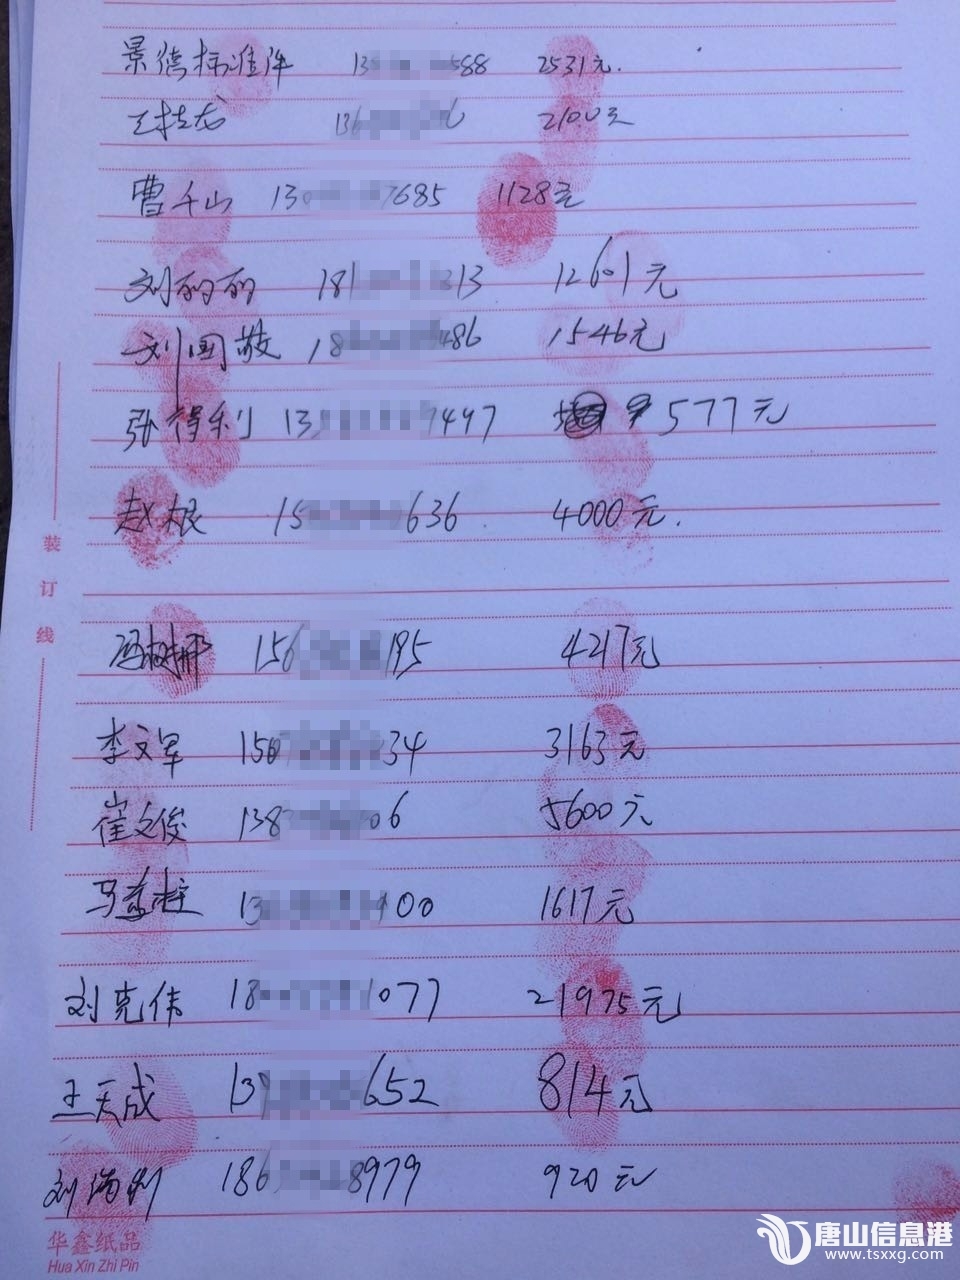 景德标准件 13 588 2531元.
王桂龙 136 6 2100元
曹千山 130 7685 1128元
刘丽丽 181 313 1261元
刘国敬 18 486 1546元
张得利 13 7497 577元
赵根 15 636 4000元.
装订线
冯树娜 156 195 4217元
李文军 150 34 3163元
崔文俊 138 06 5600元
马 柱 13 00 1617元
刘克伟 18 1077 21975元
王天成 139 652 814元
刘 利 186 8979 920元
华鑫纸品
Hua Xin Zhi Pin
唐山信息港
www.tsxxg.com